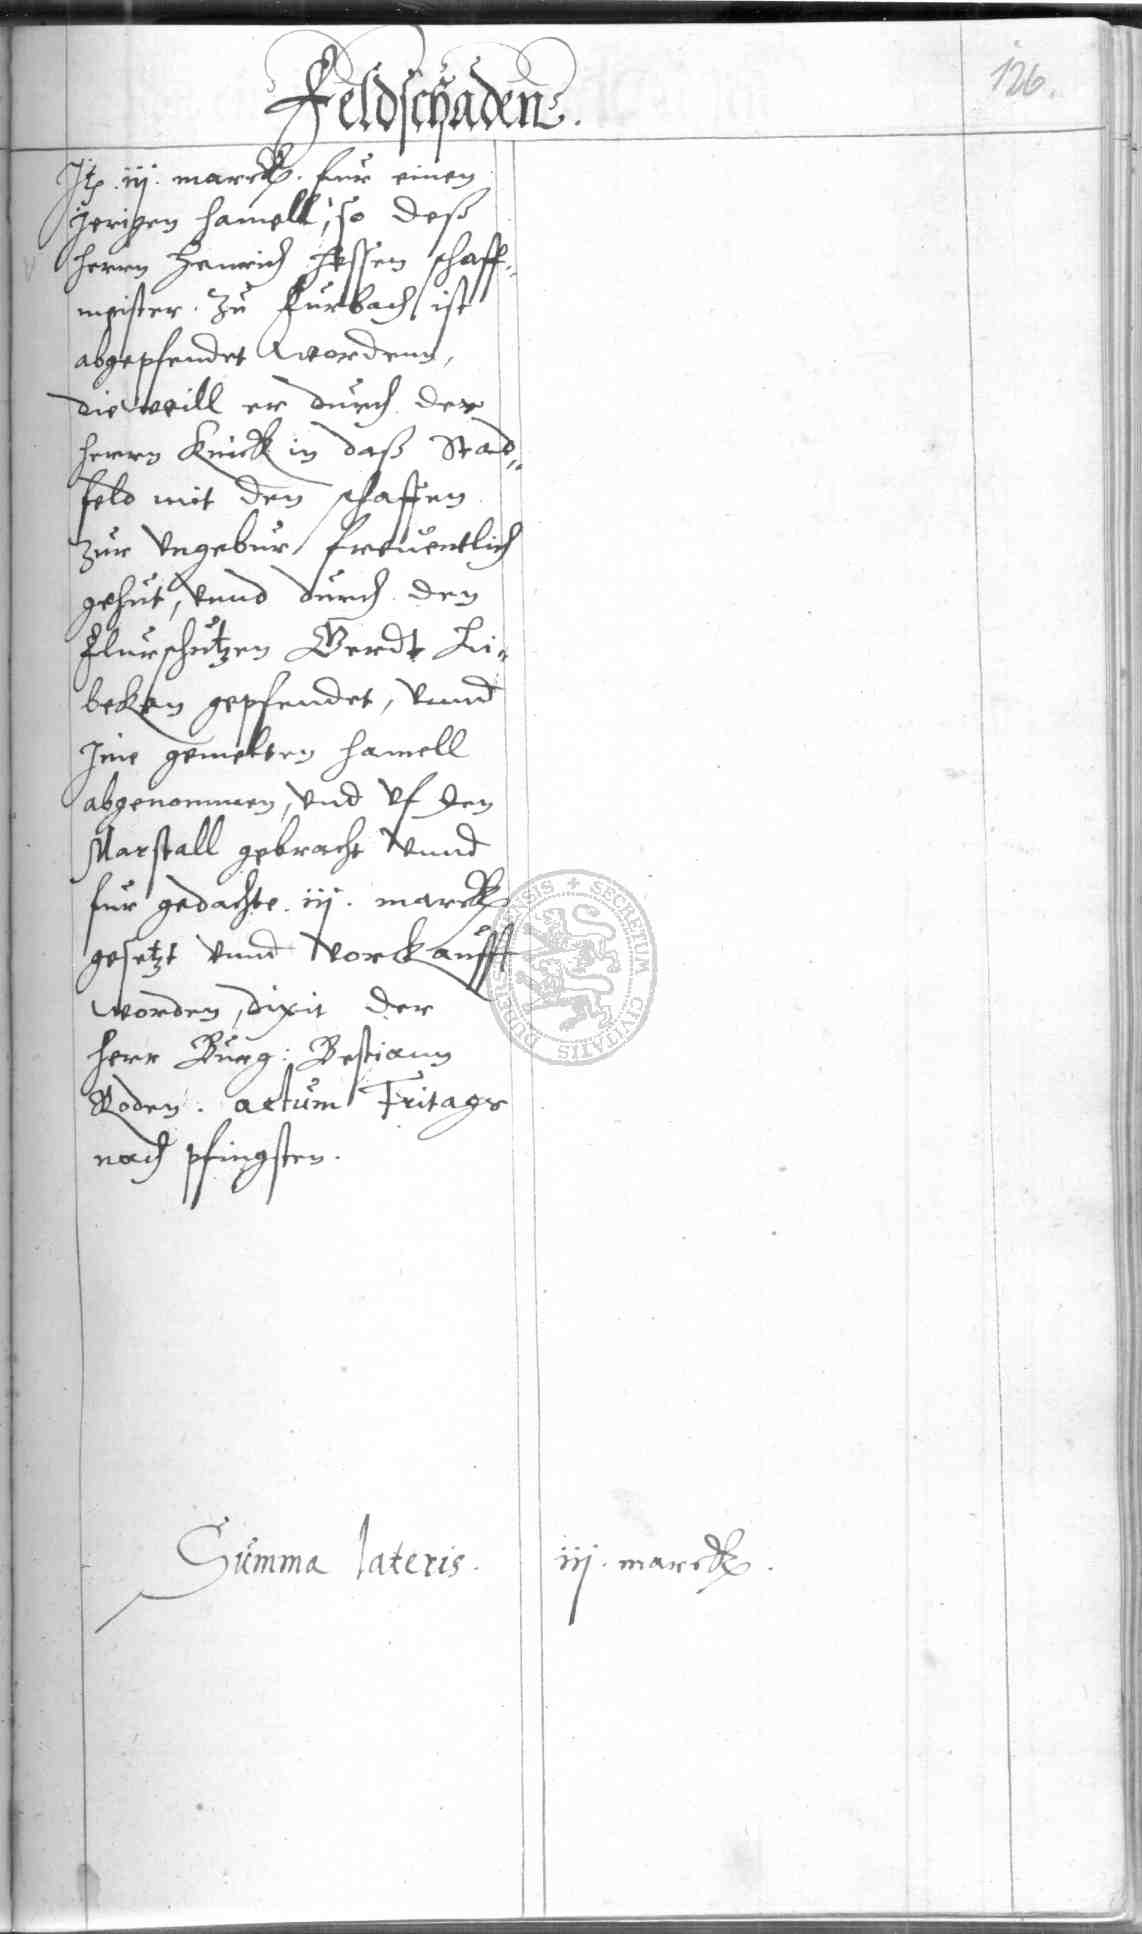 126.
Feldschaden.
Itē. iij. marck. fur einen
jerigen hamell, so deß
herrn Henrich Hessen schaff„
meister. zu Furbach ist
abgepfendet wordenn,
dieweill er durch der
herrn Knick in daß Stad„
feld mit den schaffen
zur Vngebur freuentlich
gehut, vnnd durch den
Flurschutzen Gerdt Li„
beken gepfendet, vnnd
Ime gemelten hamell
abgenommen, vnd vf den
Marstall gebracht vnnd
fur gedachte. iij. marck
gesetzt vnnd vorkaufft
worden, dixit der
herr Burg: Bestiann
Roden. actum Fritags
nach pfingsten.
Summa lateris. iij. marck.
SECRETUM CIVITATIS